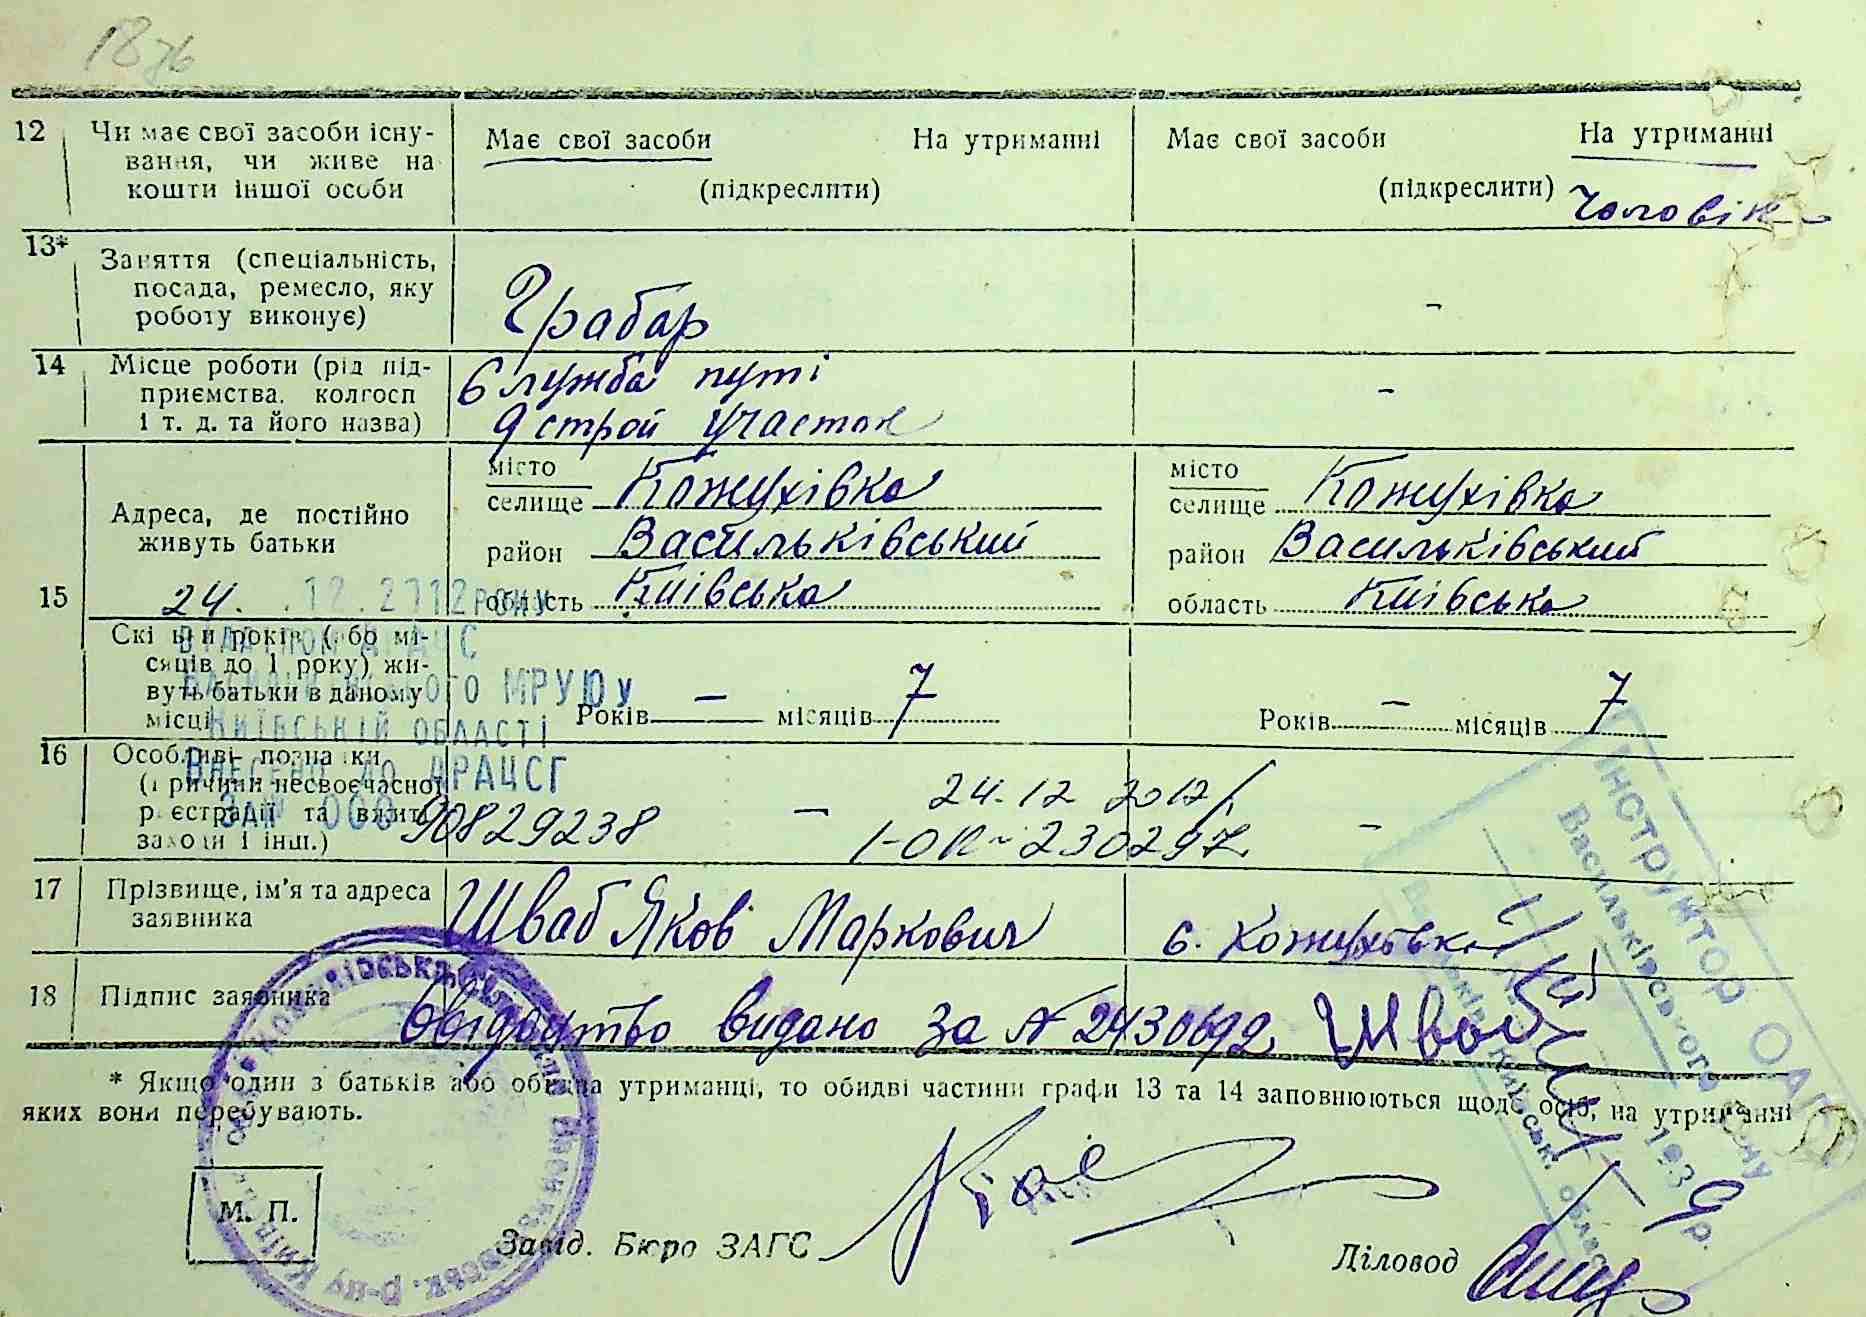 1876
12 Чи має свої засоби існу- Має свої засоби На утриманні Має свої засоби На утриманні
вання, чи живе на
кошти іншої особи (підкреслити) (підкреслити) Чоловік
13* Заняття (спеціальність,
посада, ремесло, яку
роботу виконує) Грабар -
14 Місце роботи (рід під- Служба путі
приємства, колгосп -
і т. д. та його назва) 9 строй участок
15 Адреса, де постійно живуть батьки
місто Кожухівка місто Кожухівка
селище селище
район Васильківський район Васильківський
область Київська область Київська
24. .12.2012 року
ВІДДІЛОМ ДРАЦС
МРУЮ
КИЇВСЬКІЙ ОБЛАСТІ
ВНЕСЕНО ДО ДРАЦСГ
ЗА № 00090829238
Скільки років (або мі-
сяців до 1 року) жи-
вуть батьки в даному
місці Років — місяців 7 Років — місяців 7
16 Особливі познаки
(причини несвоєчасної
реєстрації та вжиті
заходи і інш.) - 24.12 2012 -
230297
17 Прізвище, ім'я та адреса
заявника Шваб Яков Маркович с. Кожуховка
18 Підпис заявника Свідоцтво видано за № 2430692. Шваб
* Якщо один з батьків або обидва утриманці, то обидві частини графи 13 та 14 заповнюються щодо осіб, на утриманні
яких вони перебувають.
М. П.
Завід. Бюро ЗАГС
Діловод
Інструктор ОАГС
Васильківського р-ну
193 9 р.